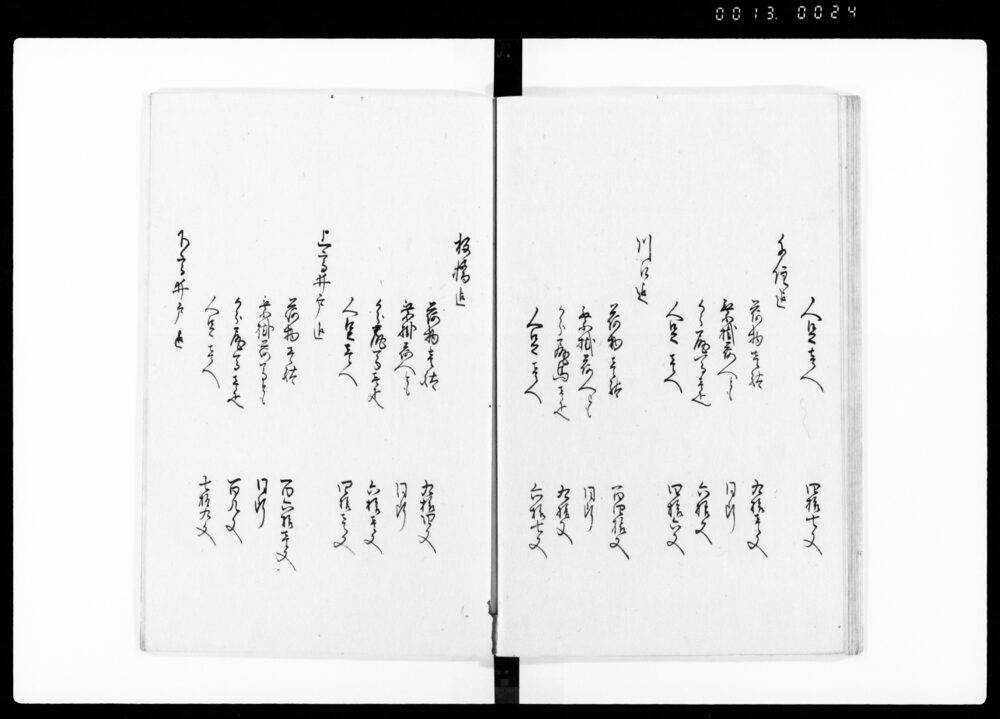 0013. 0024
人足壱人 四拾七文
千住迄
荷物壱駄 九拾壱文
乗掛荷人とも 同断
から尻馬壱疋 六拾文
人足壱人 四拾六文
川口迄
荷物壱駄 百四拾文
乗掛荷人とも 同断
から尻馬壱疋 九拾文
人足壱人 六拾七文
板橋迄
荷物壱駄 九拾四文
乗掛荷人とも 同断
から尻馬壱疋 六拾壱文
人足壱人 四拾壱文
上高井戸迄
荷物壱駄 百六拾壱文
乗掛荷人とも 同断
から尻馬壱疋 百九文
人足壱人 七拾九文
下高井戸迄